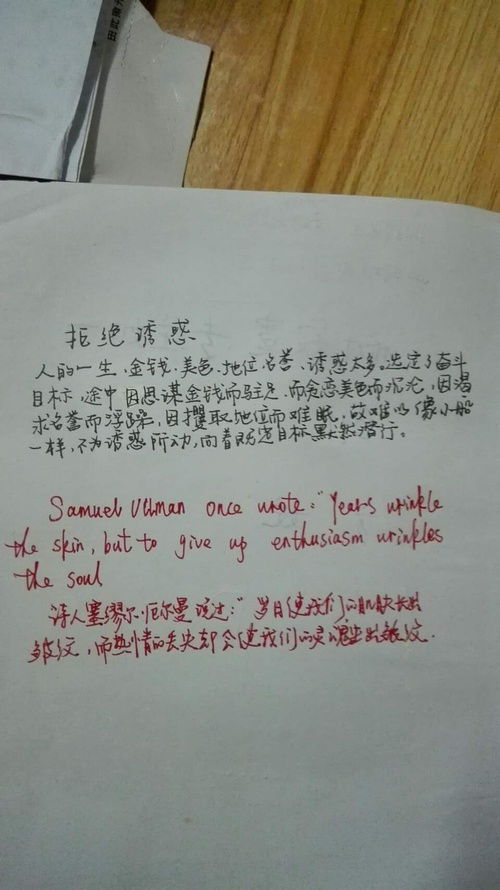 拒绝诱惑
人的一生,金钱、美色、地位名誉、诱惑太多。选定了奋斗
目标,途中因思谋金钱而驻足,而贪恋美色而沉沦,因渴
求名誉而浮躁,因攫取地位而难眠,故难以像小船
一样,不为诱惑所动,向着既定目标默然潜行。
Samuel Ullman once wrote:"Years wrinkle
the skin, but to give up enthusiasm wrinkles
the soul
诗人塞缪尔·厄尔曼说过:"岁月使我们的肌肤长出
皱纹,而热情的丢失却会使我们的灵魂生出皱纹.